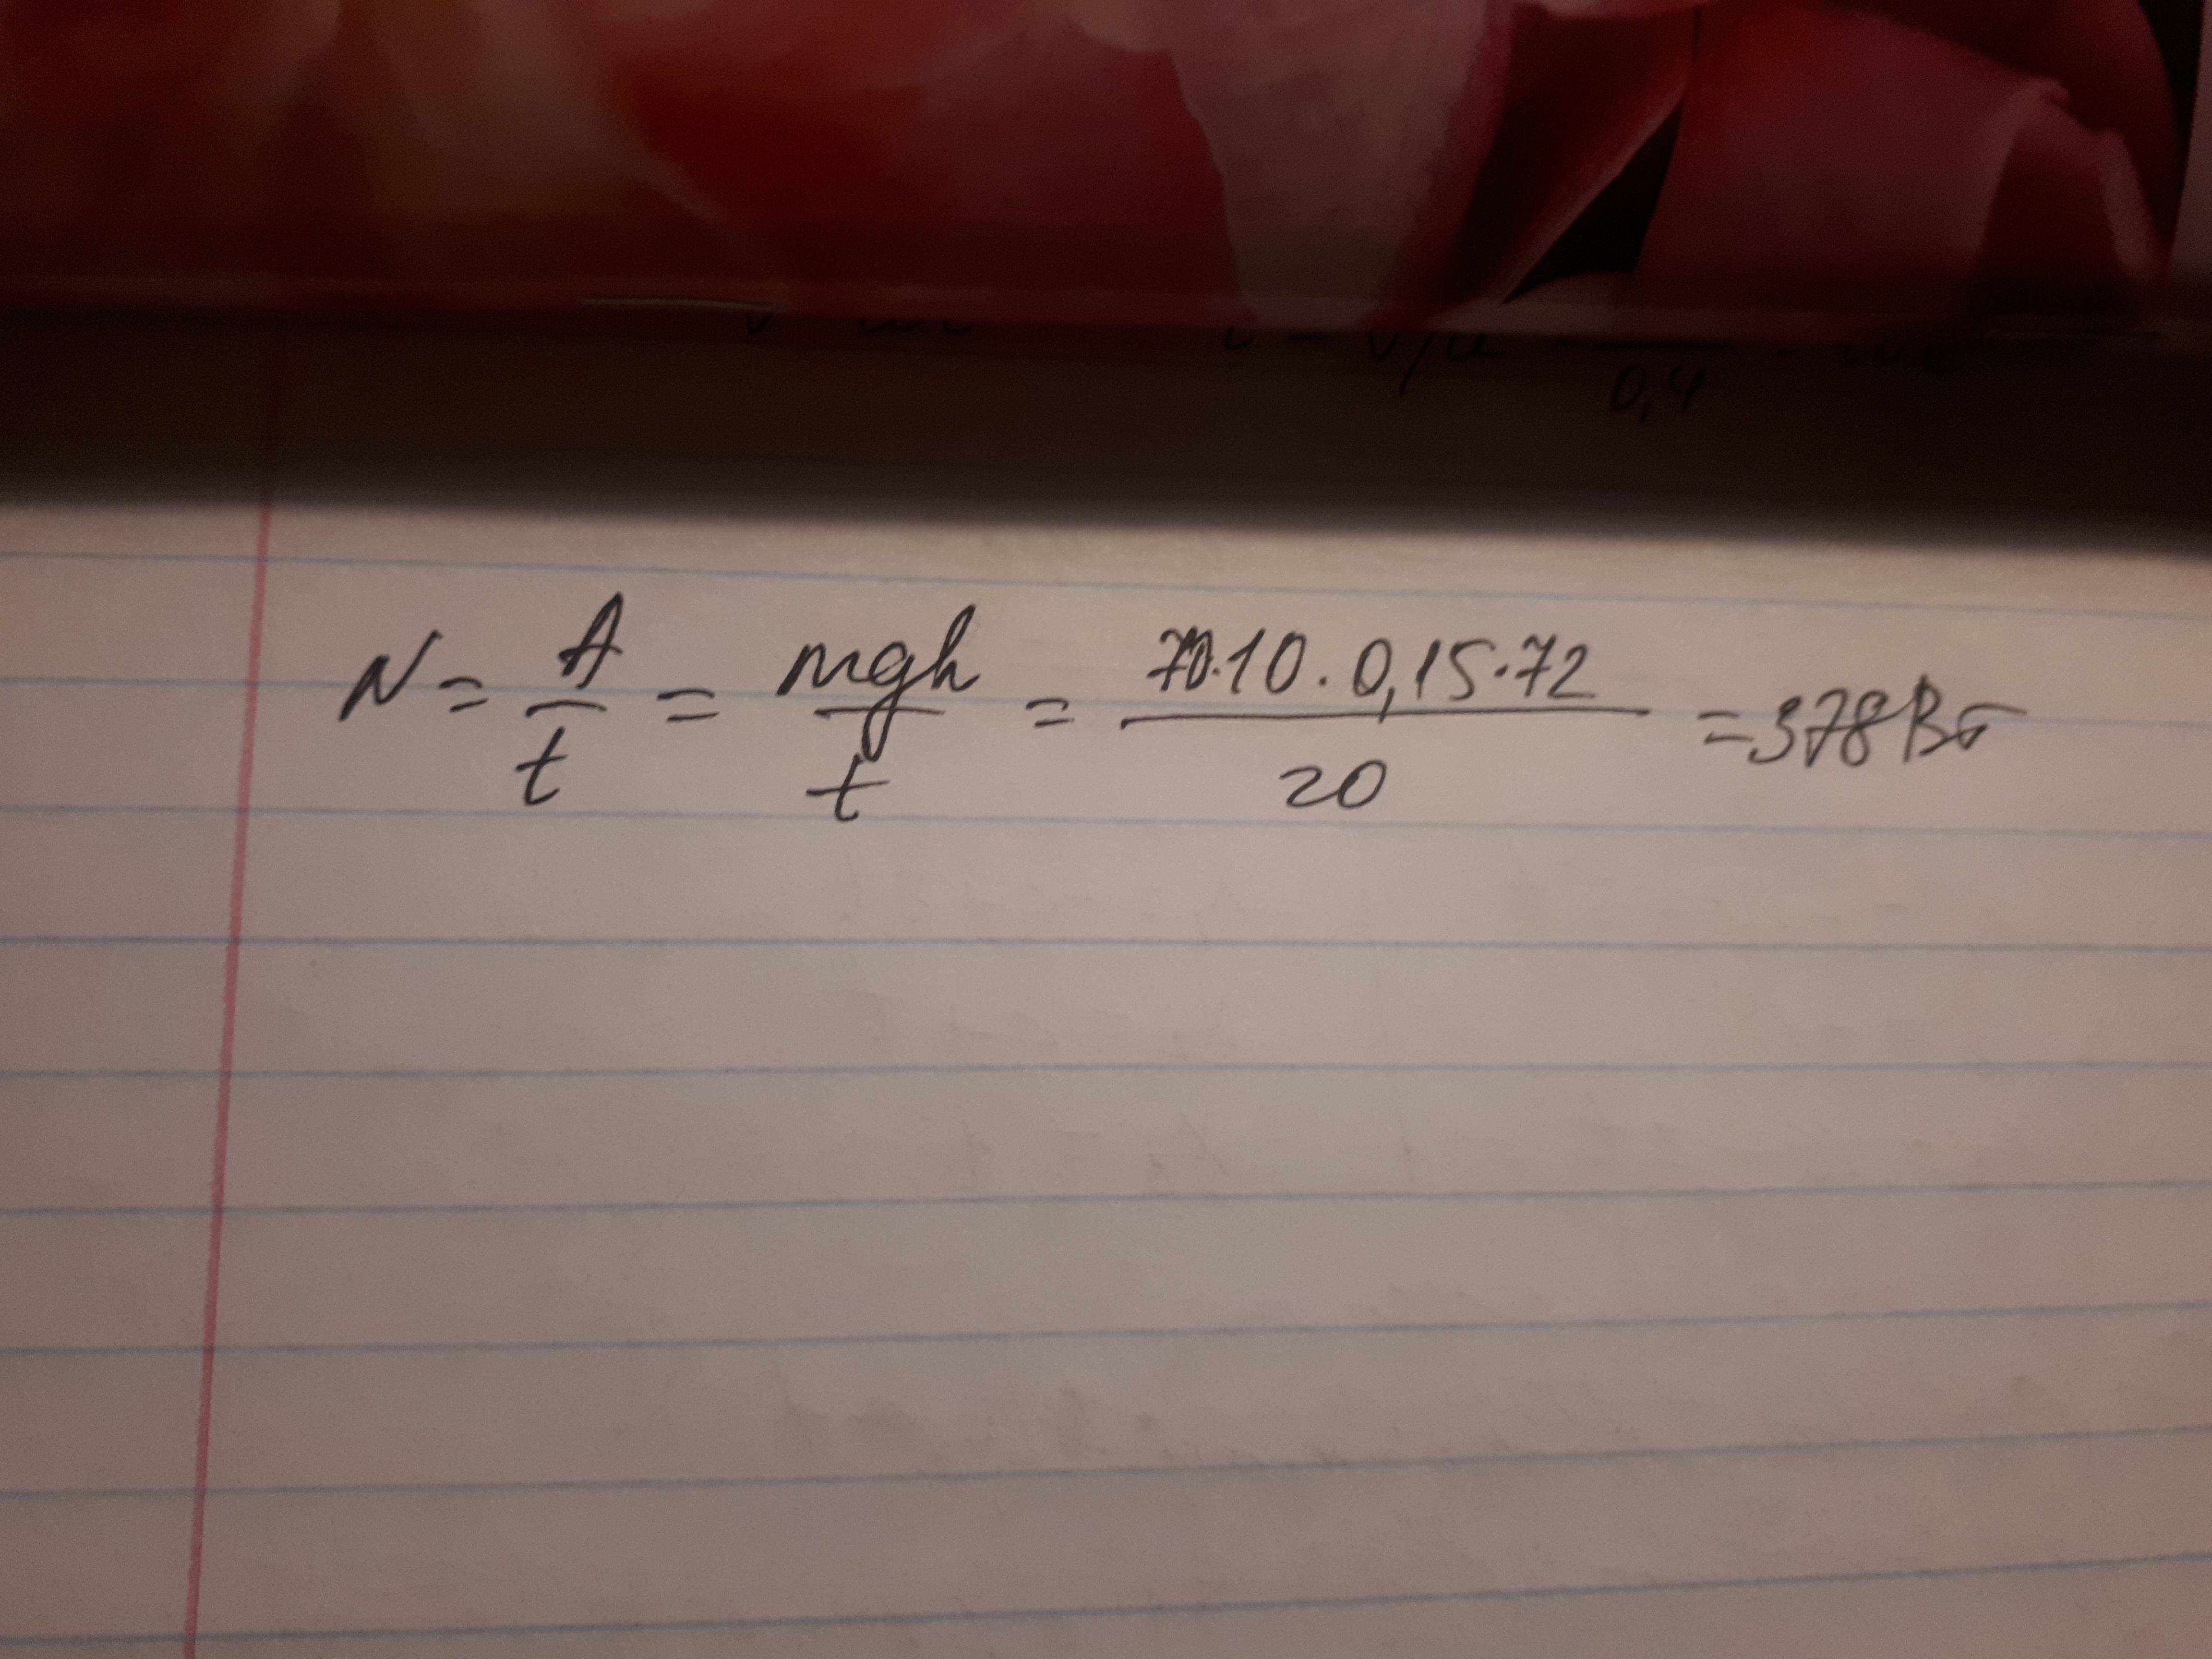 0,4
N = A/t = mgh/t = 70·10·0,15·72/20 = 378 Вт